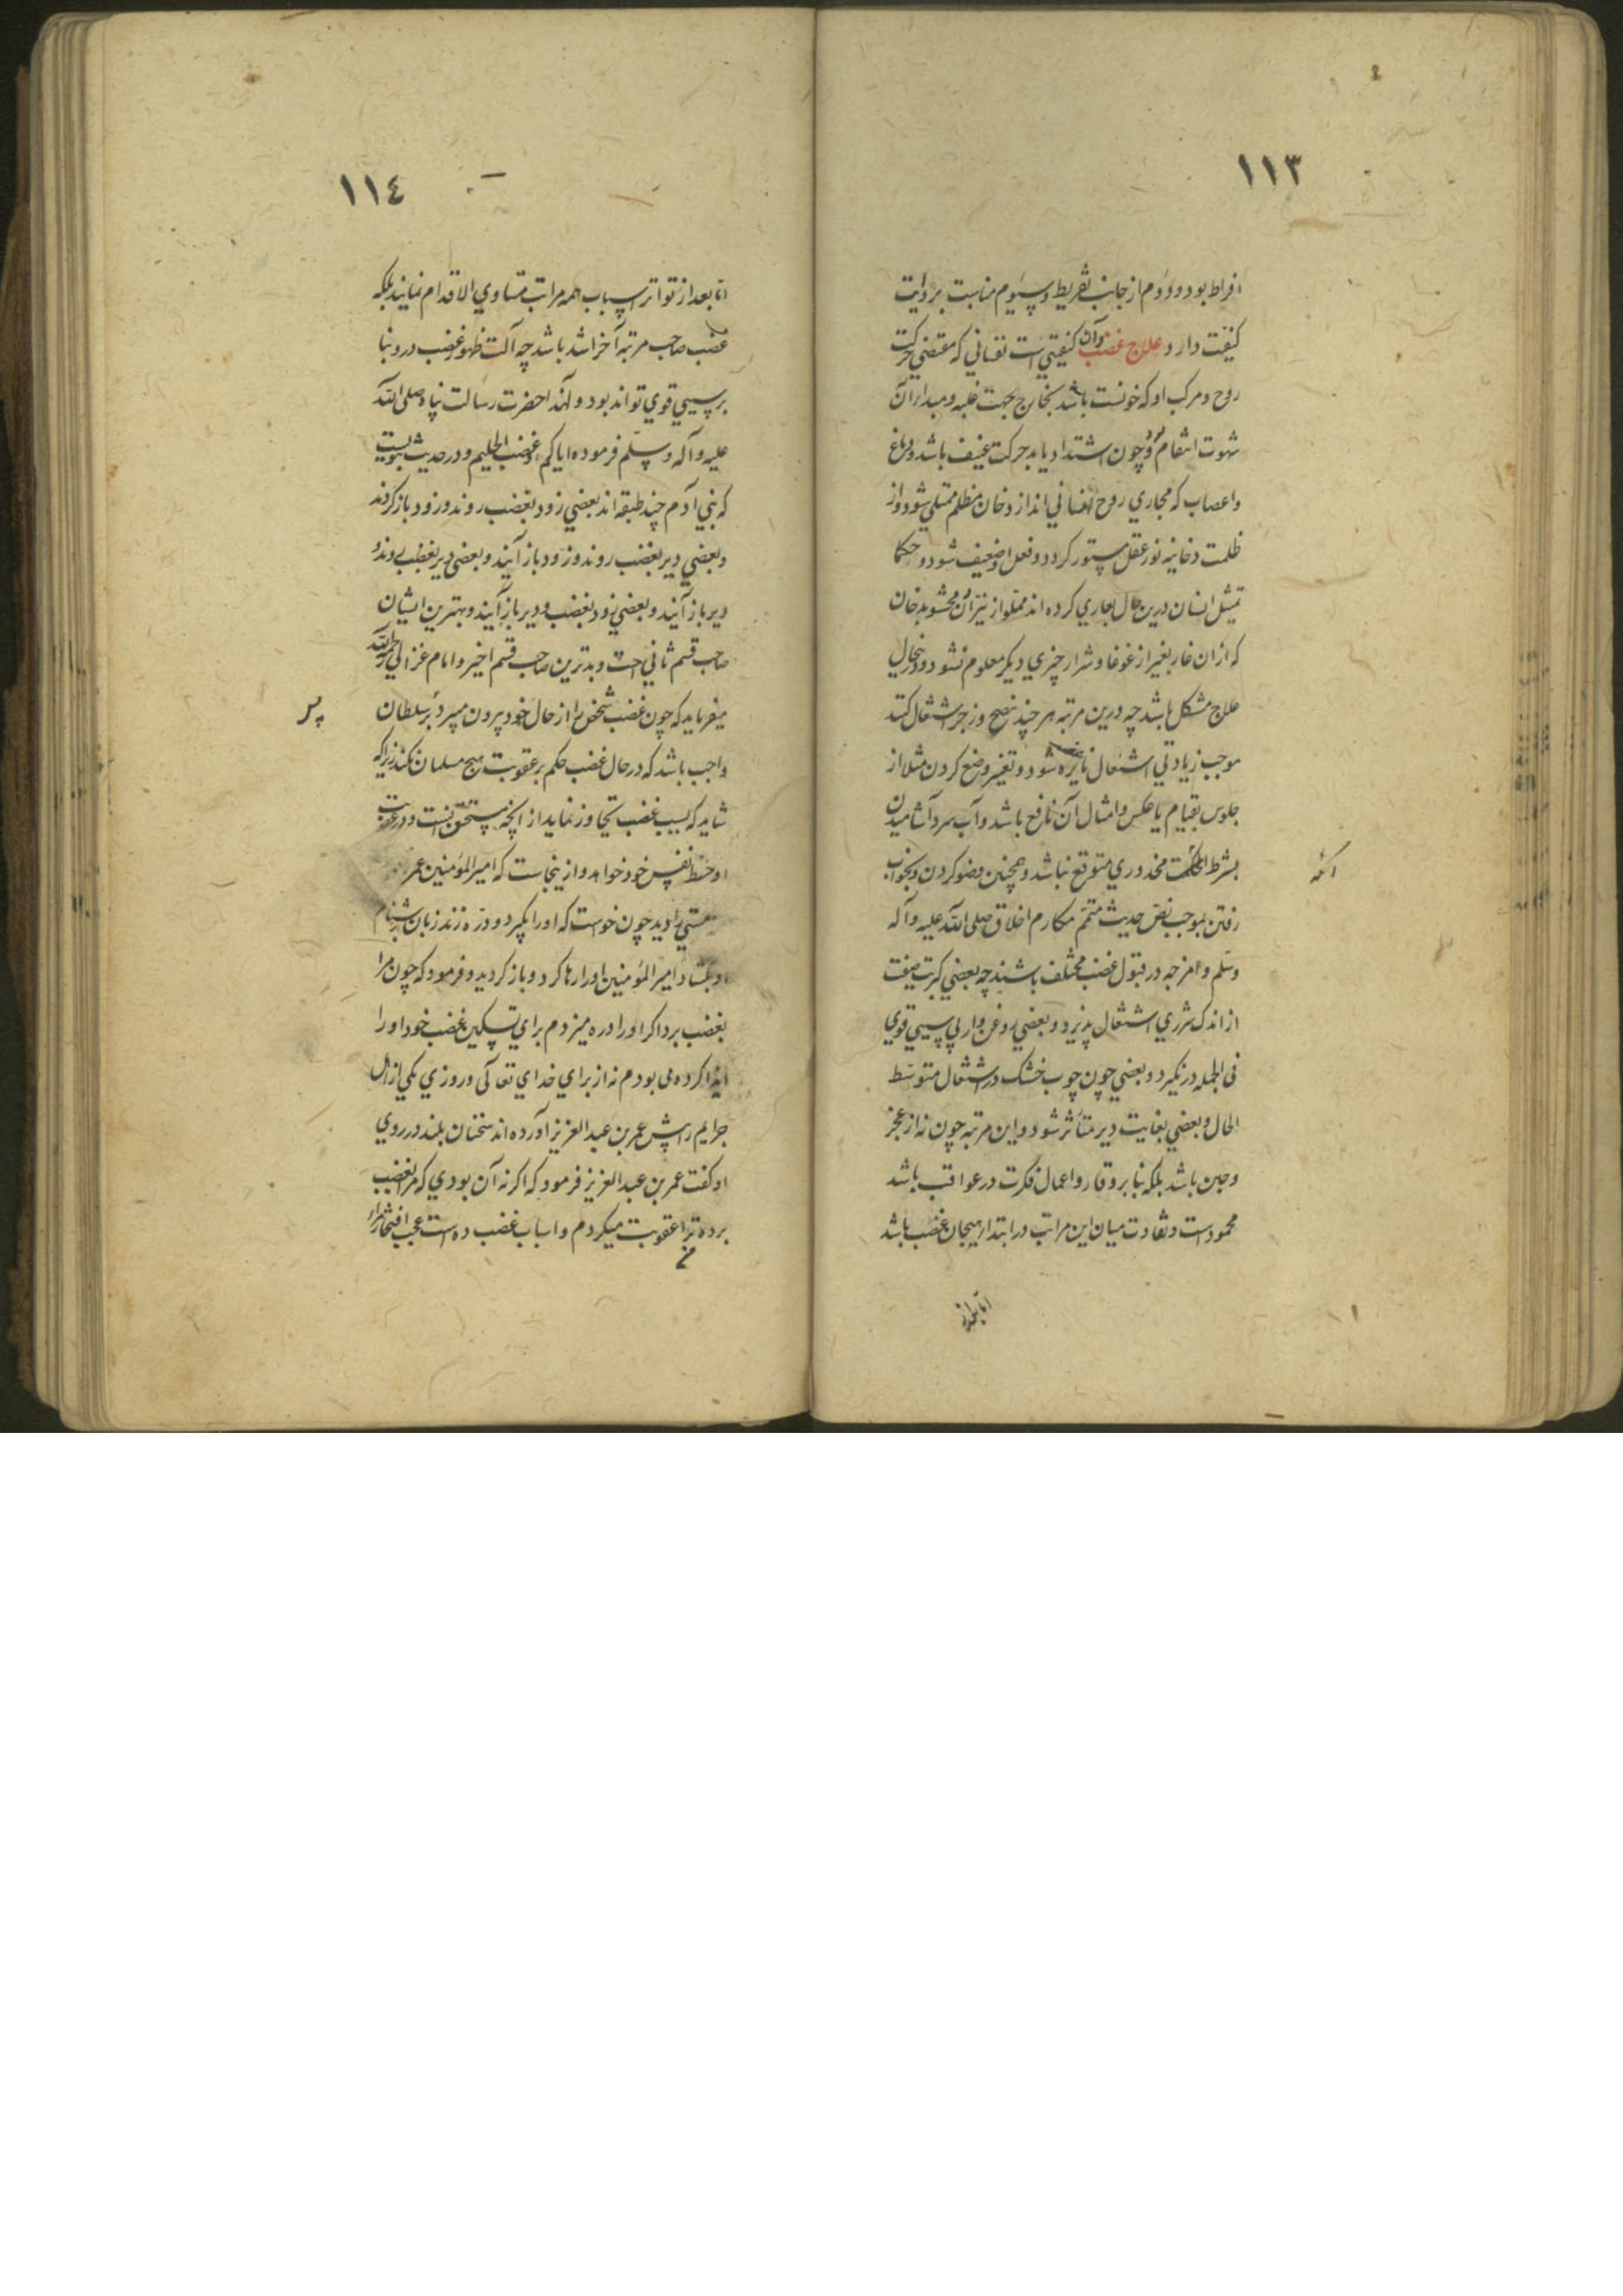 ١١٣
افراط بود و دوم از جانب تفریط و سیوم مناسبت بردایت
کیفیت دارد علاج غضب و آن کیفیتی است نفسانی که مقتضی حرکت
روح و مرکب او که خونست باشد بخارج بجهت غلبه و مبداء آن
شهوت انتقام بود و چون اشتداد یابد حرکت عنیف باشد و دماغ
و اعصاب که مجاری روح نفسانی اند از دخان مظلم ممتلی شود و از
ظلمت دخانیه نور عقل مستور کردد و فعل او ضعیف شود و حکما
تمثیل انسان درین حال بغاری کرده اند مملو از نیران و محشو بدخان
که از ان غار بغیر از غوغا و شرار چیزی دیکر معلوم نشود و درینحال
علاج مشکل باشد چه درین مرتبه هر چند بنصح و زجر اشتغال کنند
موجب زیادتی اشتعال نایره شود و تغییر وضع کردن مثلا از
جلوس بقیام یا عکس و امثال آن نافع باشد و آب سرد آشامیدن
بشرط آنکه محذوری متوقع نباشد و همچنین وضو کردن و بخواب
رفتن بموجب نص حدیث متمم مکارم اخلاق صلی الله علیه و آله
وسلم و امزجه در قبول غضب مختلف باشند چه بعضی کبریت صفت
از اندک شرری اشتعال پذیرد و بعضی روغن وار بی سببی قوی
فی الجمله در نگیرد و بعضی چون چوب خشک در اشتعال متوسط
الحال و بعضی بغایت دیر متاثر شود و این مرتبه چون نه از عجز
و جبن باشد بلکه بنا بر وقار و اعمال فکرت در عواقب باشد
محمود است و تفاوت میان این مراتب در ابتداء هیجان غضب باشد
اما بعد از
١١٤
اما بعد از تواتر اسباب همه مراتب متساوی الاقدام نمایند بلکه
غضب صاحب مرتبه آخر اشد باشد چه آلت ظهور غضب درو بنا
بر سببی قوی تواند بود و لهذا حضرت رسالت پناه صلی الله
علیه و آله وسلم فرموده ایاکم و غضب الحلیم و در حدیث نبویست
که بنی آدم چند طبقه اند بعضی زود بغضب روند و زود باز کردند
و بعضی دیر بغضب روند و زود باز آیند و بعضی دیر بغضب روند و
دیر باز آیند و بعضی زود بغضب و دیر باز آیند و بهترین ایشان
صاحب قسم ثانی است و بدترین صاحب قسم اخیر و امام غزالی رحمه الله
میفرماید که چون غضب شخص را از حال خود بیرون میبرد بر سلطان
واجب باشد که در حال غضب حکم بر عقوبت هیچ مسلمان نکند زیرا که
شاید که بسبب غضب تجاوز نماید از آنچه مستحق آنست و در عقوبت
او حظ نفس خود خواهد و ازینجاست که امیر المؤمنین عمر
مستی را دید چون خواست که او را بگیرد و دره زند زبان بدشنام
او بگشاد امیر المؤمنین او را رها کرد و باز کردید و فرمود که چون مرا
بغضب برد اکر او را دره میزدم برای تسکین غضب خود او را
ایذا کرده می بودم نه از برای خدای تعالی و روزی یکی از اهل
جرایم را پیش عمر بن عبد العزیز آورده اند سخنان بلند در روی
او کفت عمر بن عبد العزیز فرمود که اکر نه آن بودی که مرا بغضب
بردهٔ ترا عقوبت میکردم و اسباب غضب ده است عجب افتخار مراء